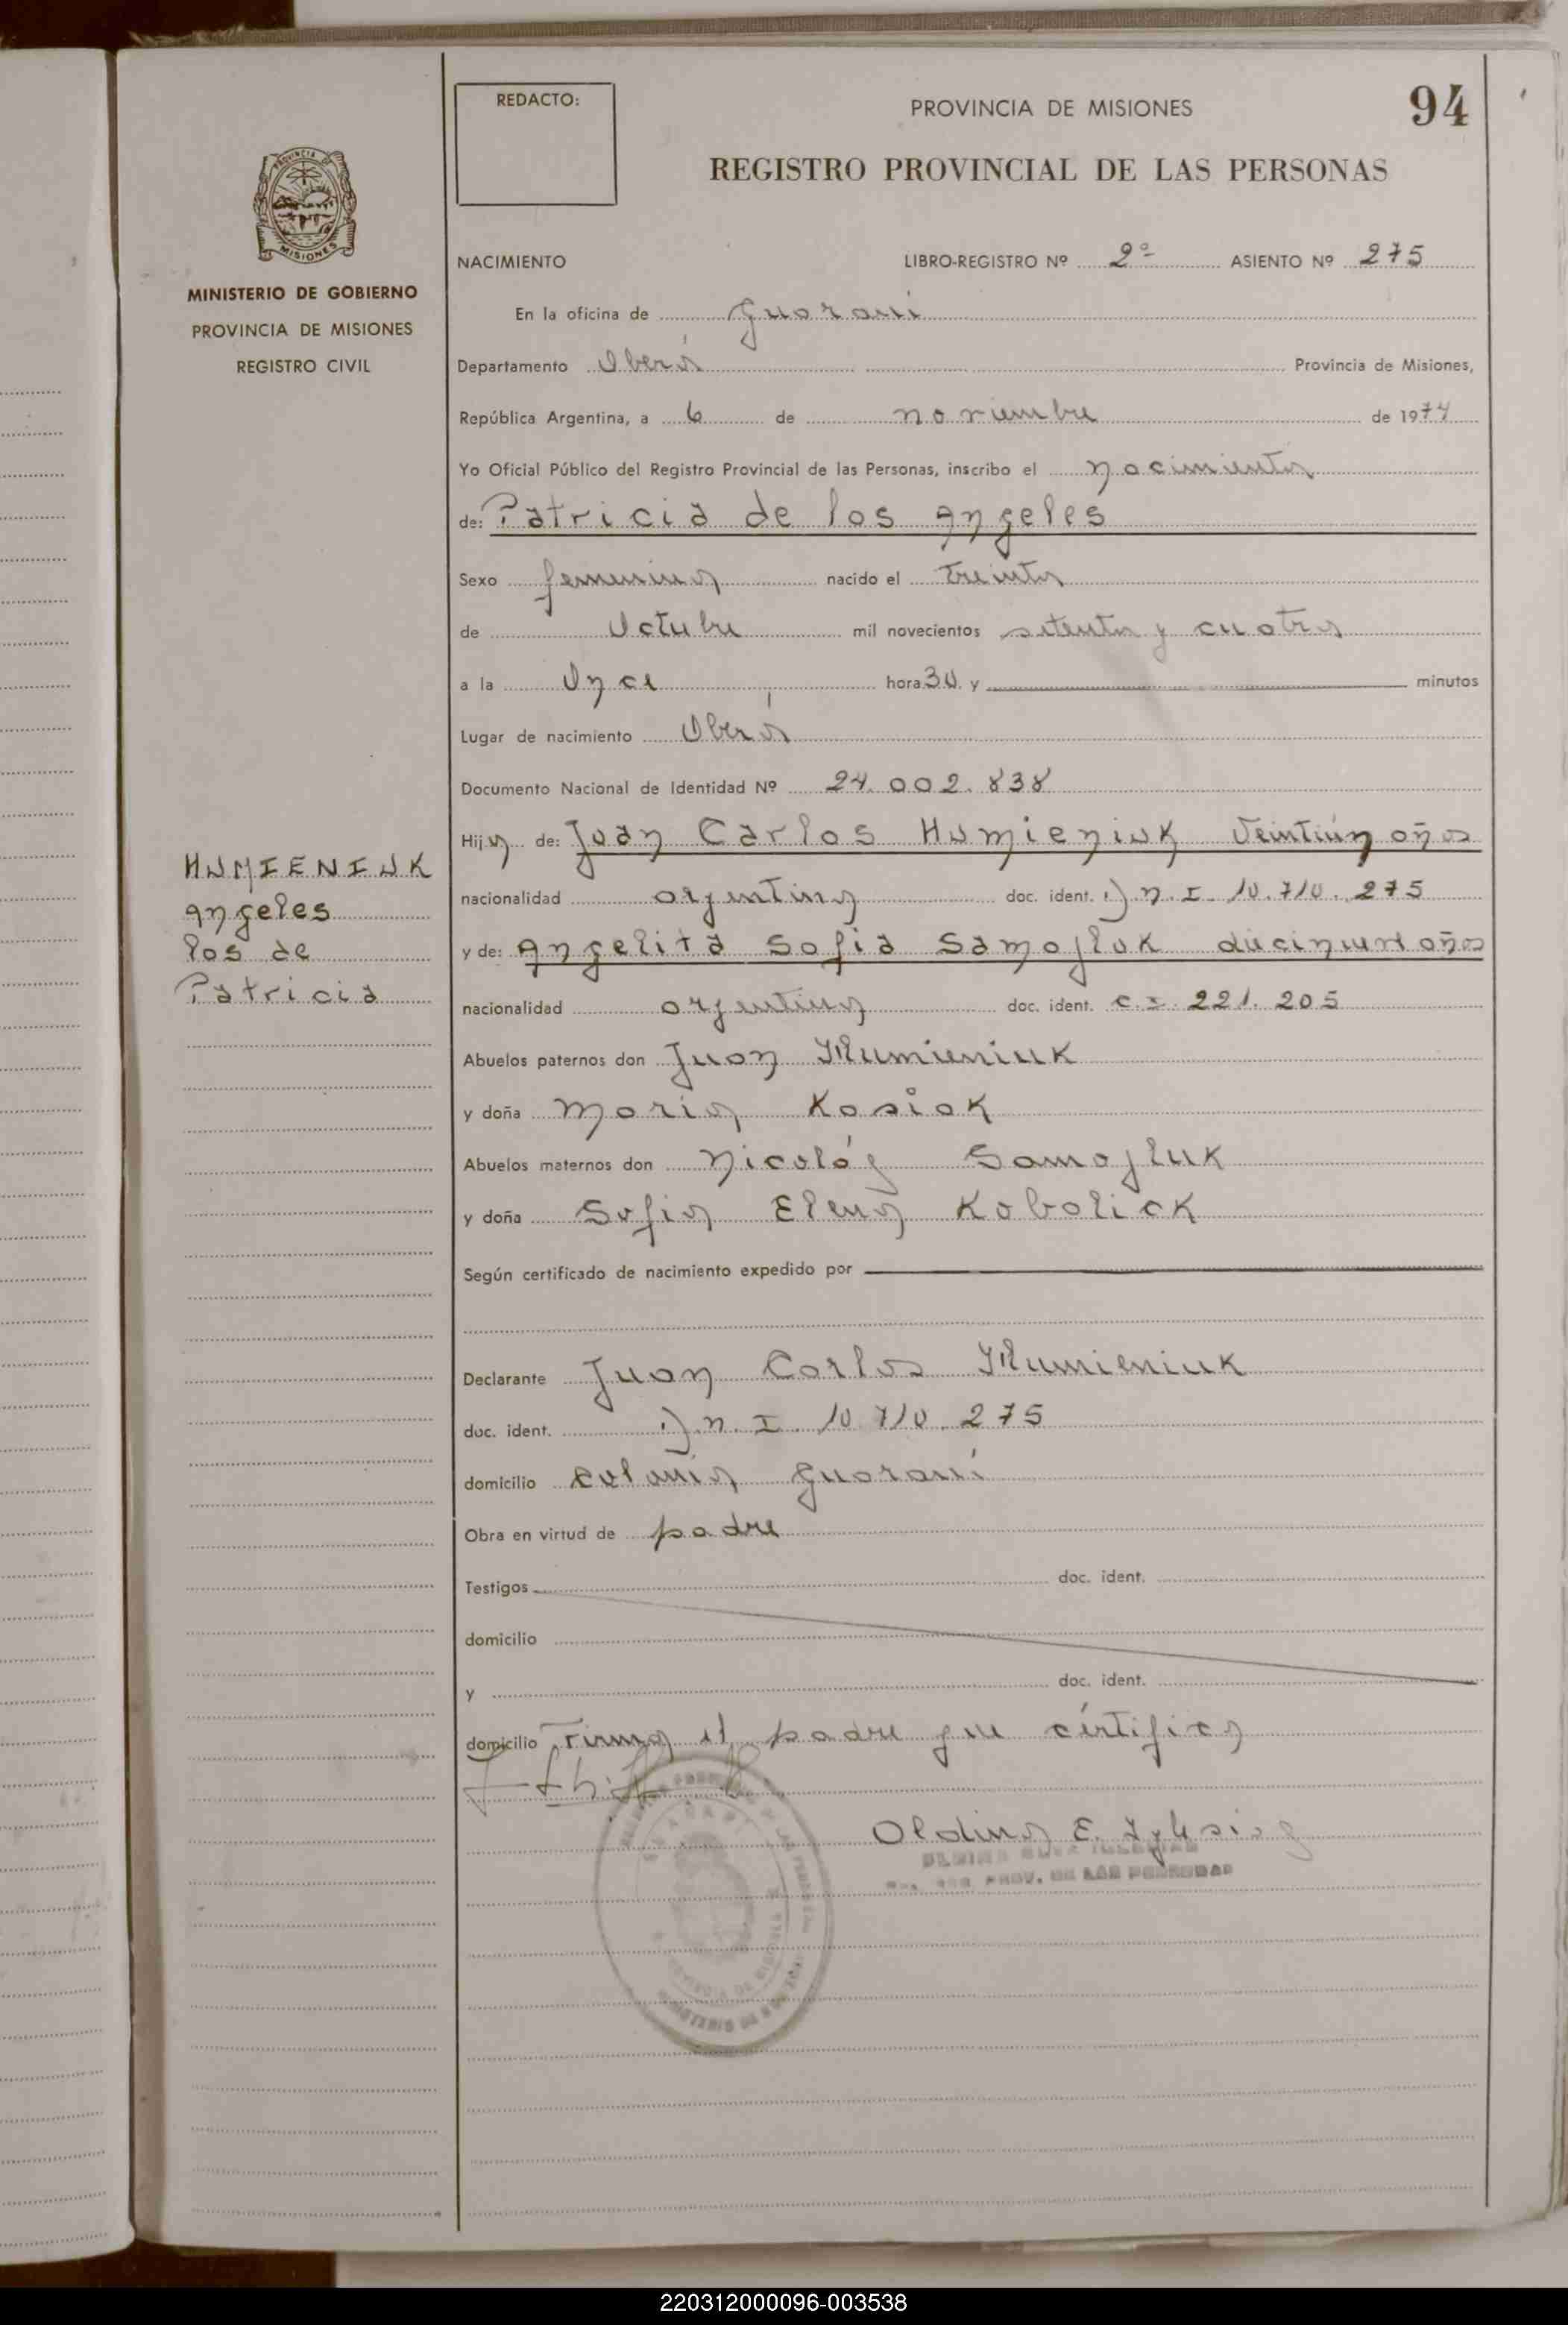 REDACTO:
PROVINCIA DE MISIONES
94
REGISTRO PROVINCIAL DE LAS PERSONAS
PROVINCIA DE
MISIONES
MINISTERIO DE GOBIERNO
PROVINCIA DE MISIONES
REGISTRO CIVIL
NACIMIENTO LIBRO-REGISTRO Nº 2º ASIENTO Nº 275
En la oficina de Guaraní
Departamento Oberá Provincia de Misiones,
República Argentina, a 6 de noviembre de 1974
Yo Oficial Público del Registro Provincial de las Personas, inscribo el nacimiento
de: Patricia de los Angeles
Sexo femenino nacido el treinta
de Octubre mil novecientos setenta y cuatro
a la Once hora 30 y minutos
Lugar de nacimiento Oberá
Documento Nacional de Identidad Nº 24.002.838
Hija de: Juan Carlos Humieniuk Veintiún años
nacionalidad argentina doc. ident. D.N.I. 10.710.275
y de: Angelita Sofia Samojluk diecinueve años
nacionalidad argentina doc. ident. C.I. 221.205
Abuelos paternos don Juan Humieniuk
y doña Maria Kosiak
Abuelos maternos don Nicolás Samojluk
y doña Sofia Elena Kobolick
Según certificado de nacimiento expedido por
Declarante Juan Carlos Humieniuk
doc. ident. D.N.I. 10.710.275
domicilio Colonia Guaraní
Obra en virtud de padre
Testigos doc. ident.
domicilio
y doc. ident.
domicilio Firma el padre que certifica
Oldina E. Iglesias
PROV. DE LAS PERSONAS
HUMIENIUK
Angeles
los de
Patricia
220312000096-003538